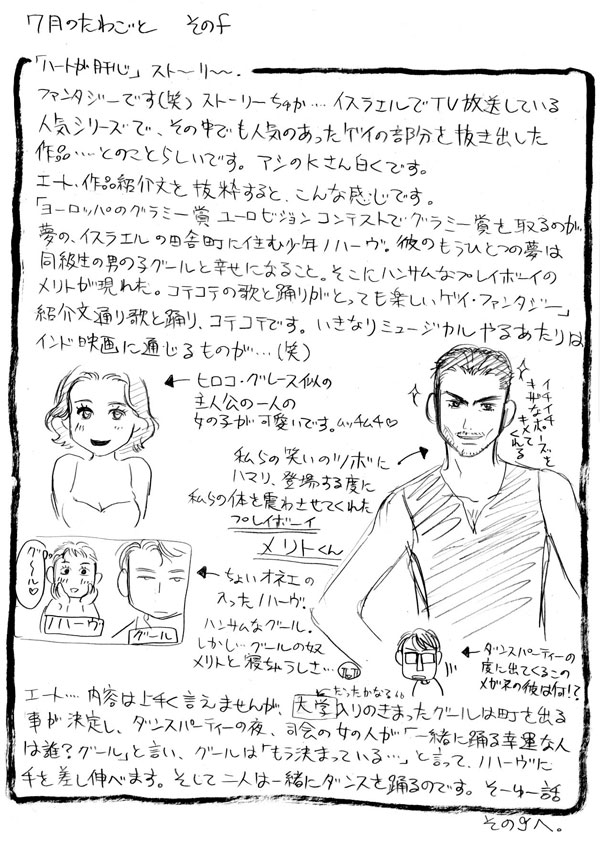 7月のたわごと その f
「ハートが肝心」ストーリー。
ファンタジーです(笑) ストーリーちゅか…イスラエルでTV放送している
人気シリーズで、その中でも人気のあったゲイの部分を抜き出した
作品…とのことらしいです。アシのKさん曰くです。
エート、作品紹介文を抜粋すると、こんな感じです。
「ヨーロッパのグラミー賞 ユーロビジョンコンテストでグラミー賞を取るのが
夢の、イスラエルの田舎町に住む少年ノハーヴ。彼のもうひとつの夢は
同級生の男の子グールと幸せになること。そこにハンサムなプレイボーイの
メリトが現れた。コテコテの歌と踊りがとっても楽しいゲイ・ファンタジー」
紹介文通り歌と踊り、コテコテです。いきなりミュージカルやるあたりは
インド映画に通じるものが…(笑)
←ヒロコ・グレース似の
主人公の一人の
女の子が可愛いです。ムッチムチ♡
イチイチ
キザなポーズを
キメてくれる
私らの笑いのツボに
ハマり、登場する度に
私らの体を震わせてくれた
プレイボーイ
メリトくん
グール♡
ノハーヴ
グール
←ちょいオネエの
入ったノハーヴ。
ハンサムなグール。
しかし…グールの奴
メリトと寝ちゃうしさ…
←ダンスパーティーの
度に出てくるこの
メガネの彼は何!?
エート…内容は上手く言えませんが、大学入りのきまったグールは町を出る
←だったかなる
事が決定し、ダンスパーティーの夜、司会の女の人が「一緒に踊る幸運な人
は誰？グール」と言い、グールは「もう決まっている…」と言って、ノハーヴに
手を差し伸べます。そして二人は一緒にダンスを踊るのです。そーゆー話
その g へ。